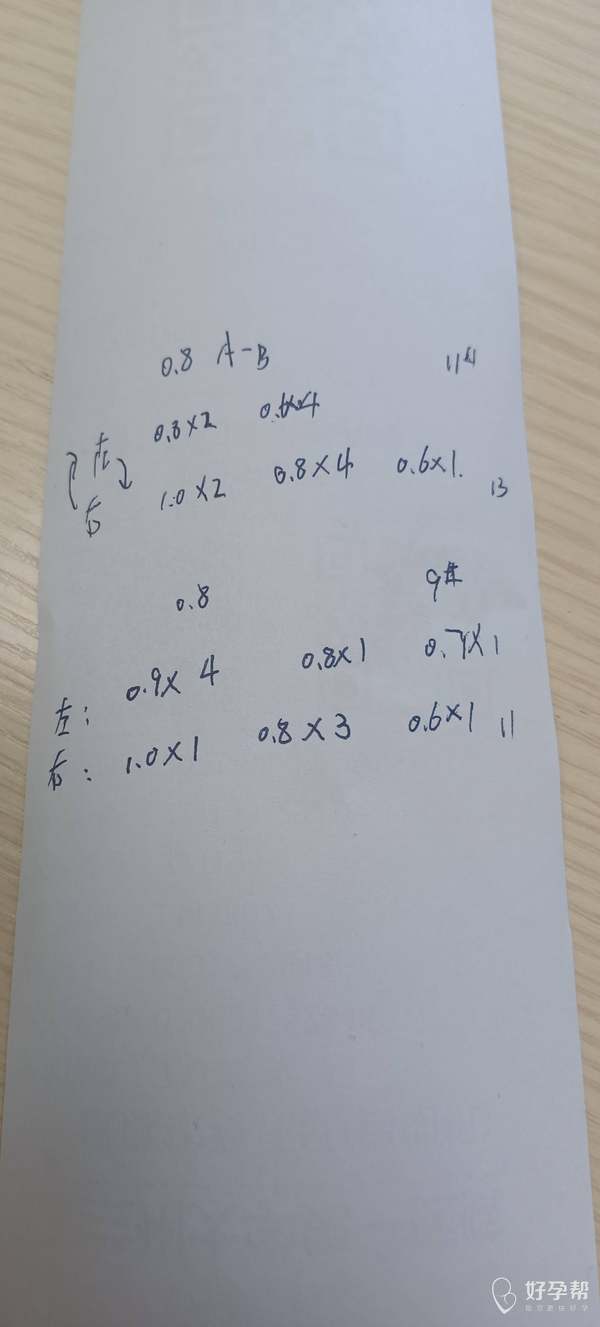 0.8 A-B 11#
左 0.8×2 0.6×4
右 1.0×2 0.8×4 0.6×1. 13
0.8 9#
左: 0.9×4 0.8×1 0.7×1
右: 1.0×1 0.8×3 0.6×1 11
好孕帮